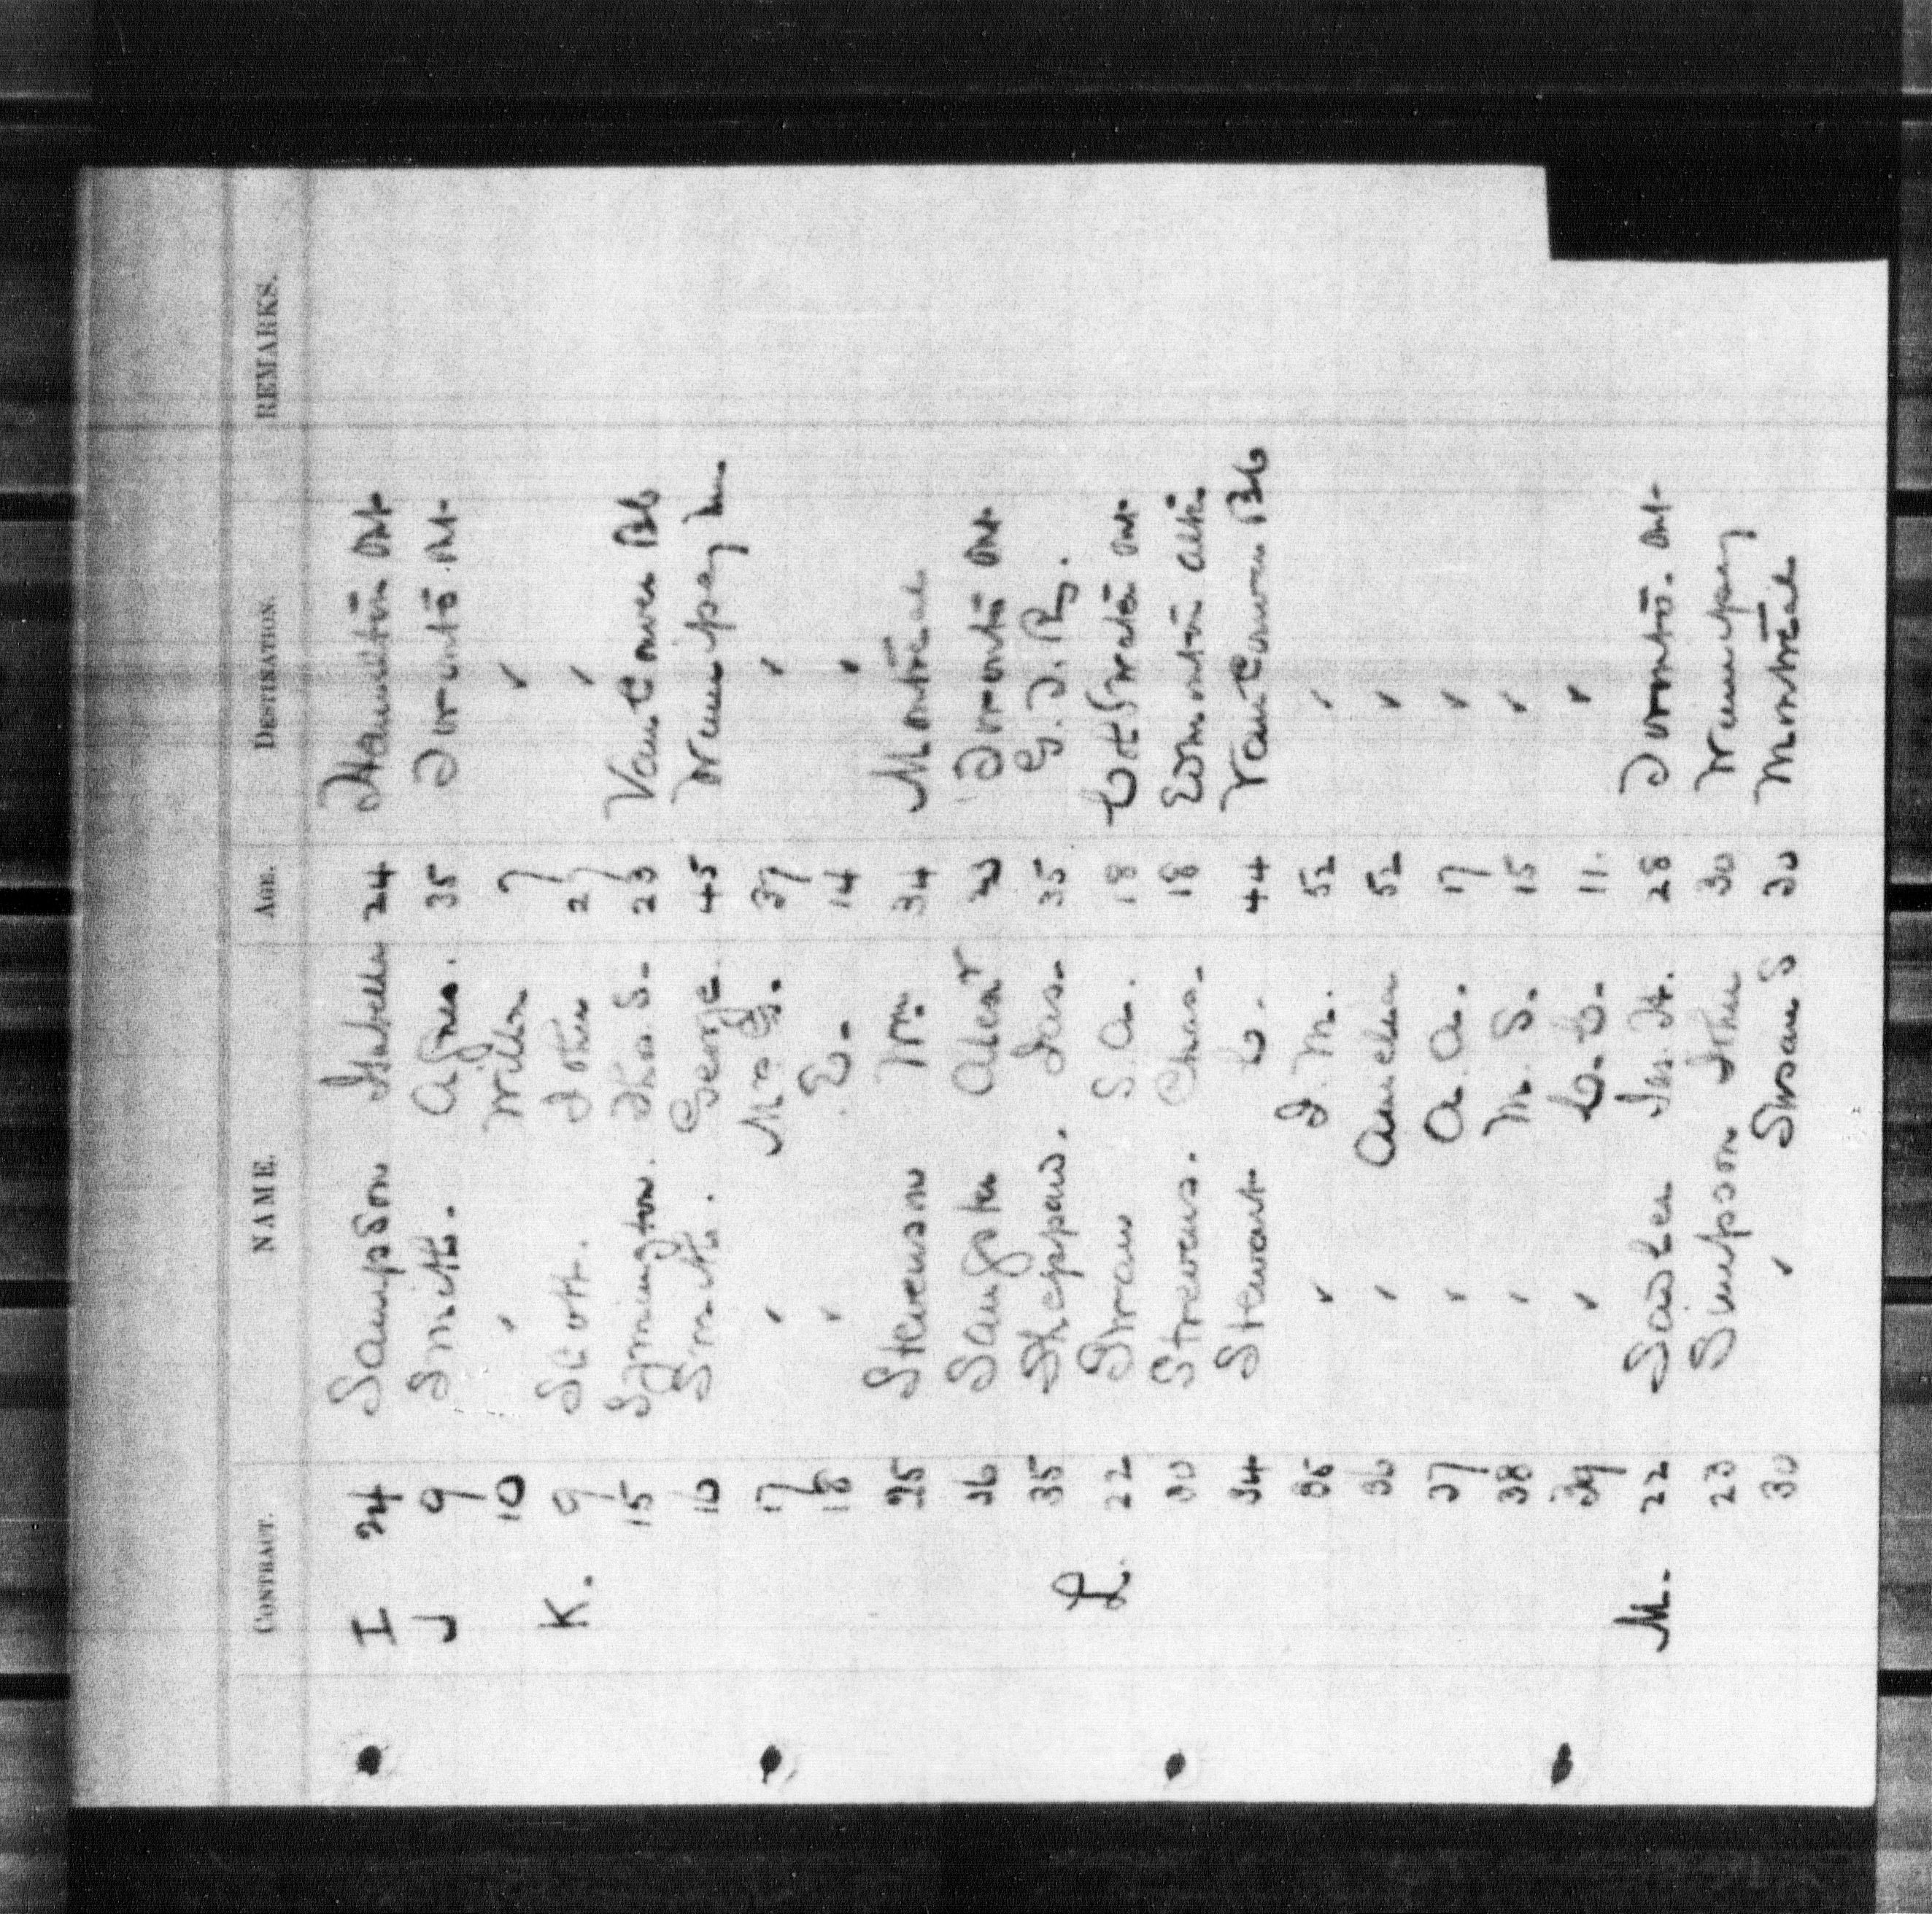 CONTRACT. NAME. AGE. DESTINATION. REMARKS.
I 24 Sampson Isabella 24 Hamilton Ont
J 9 Smith. Agnes. 35 Toronto. Ont.
10 " Willm 7 "
K. 9 Scott. John 27 "
15 Symington. Thos S. 23 Vancouver BC
16 Smith. George. 45 Winnipeg Mn.
17 " Mrs G. 37 "
18 " E. 14 "
25 Stevenson Wm 34 Montreal
Sangster Alexr Toronto Ont
35 Sheppard. Jas. 35 G. T. Ry.
L. 22 Straw S. A. 18 Ont
30 Strevens. Chas. 18 Edmonton Alta.
34 Stewart 44 Vancouver BC
35 " J. M. 52 "
36 " 52 "
37 " A. A. 17 "
38 " M. S. 15 "
39 " 11. "
M. 22 Jas. H. 28 Toronto. Ont
23 Simpson John 30 Winnipeg
30 " Susan S 30 Montreal